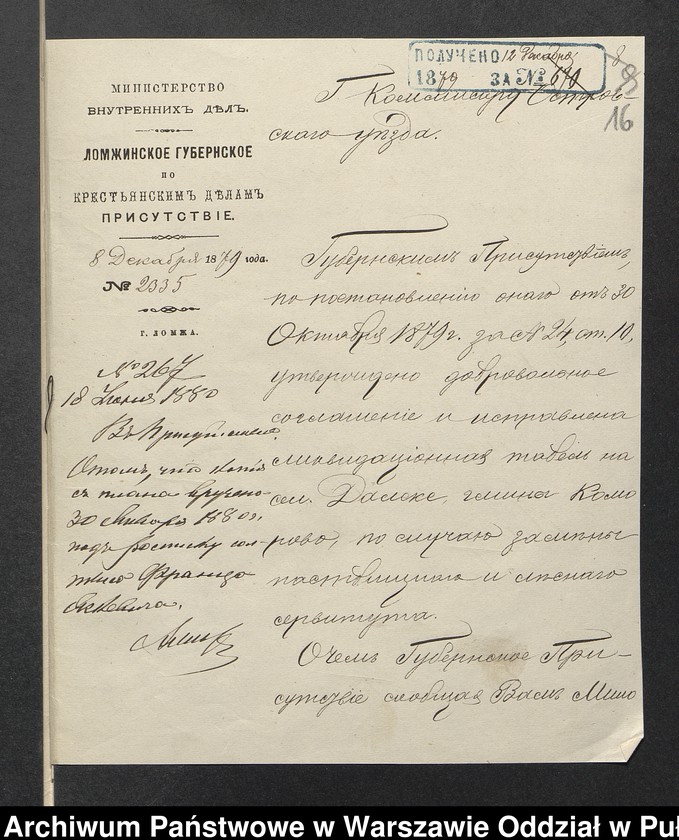 ПОЛУЧЕНО 12 Декабря
1879 ЗА № 640
16
МИНИСТЕРСТВО
ВНУТРЕННИХЪ ДѢЛЪ.
ЛОМЖИНСКОЕ ГУБЕРНСКОЕ
ПО
КРЕСТЬЯНСКИМЪ ДѢЛАМЪ
ПРИСУТСТВІЕ.
8 Декабря 1879 года.
№ 2335
Г. ЛОМЖА.
Г Коммисару Остров-
скаго уѣзда.
Губернскимъ Присутствіемъ,
по постановленію онаго отъ 30
Октября 1879 г. за № 24, ст. 10,
утверждено добровольное
соглашеніе и исправлена
ликвидаціонная табель на
сел. Далеке, гмина Комо
рово, по случаю замѣны
пастбищнаго и лѣснаго
сервитута.
О чемъ Губернское При-
сутствіе сообщая Вамъ Мило
№ 267
18 Іюня 1880
Въ Присутствіе
О томъ, что копія
съ плана вручено
30 Января 1880 г.
подъ росписку сол-
тыса